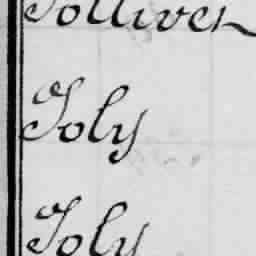 Tolliver
Joly
Joly